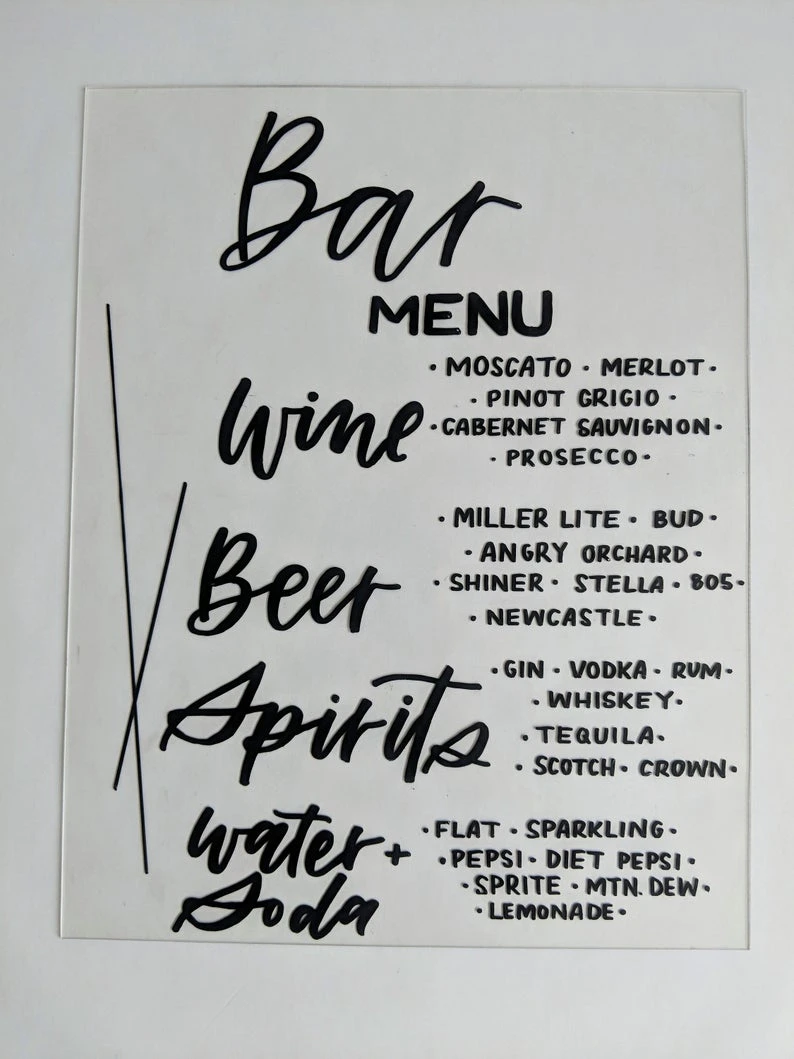 Bar
MENU
Wine
· MOSCATO · MERLOT ·
· PINOT GRIGIO ·
· CABERNET SAUVIGNON ·
· PROSECCO ·
Beer
· MILLER LITE · BUD ·
· ANGRY ORCHARD ·
· SHINER · STELLA · 805 ·
· NEWCASTLE ·
Spirits
· GIN · VODKA · RUM ·
· WHISKEY ·
· TEQUILA ·
· SCOTCH · CROWN ·
water +
Soda
· FLAT · SPARKLING ·
· PEPSI · DIET PEPSI ·
· SPRITE · MTN. DEW ·
· LEMONADE ·